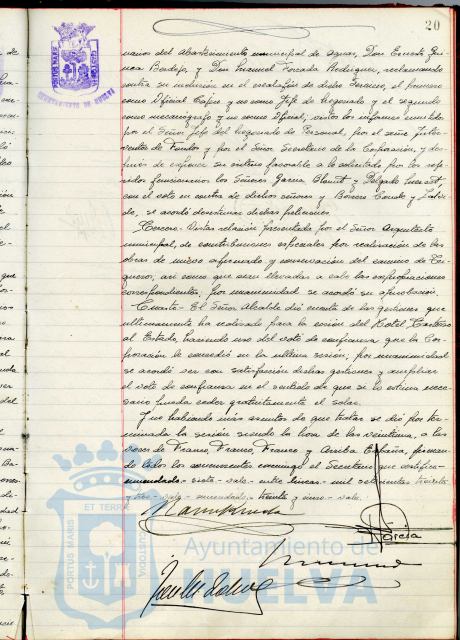 20
narios del Abastecimiento municipal de Aguas, Don Ernesto
y Don Manuel Forcada Rodriguez, reclamando
contra su inclusión en el escalafón de dicho Servicio, el primero
como Oficial Cajero y no como Jefe de Negociado y el segundo
como mecanógrafo y no como Oficial, vistos los informes emitidos
por el Señor Jefe del Negociado de Personal, por el señor Inter-
ventor de Fondos y por el Señor Secretario de la Corporación, y des-
pués de exponer su criterio favorable a lo solicitado por los refe-
ridos funcionarios los Señores Garcia y Delgado
con el voto en contra de dichos señores y Borrero Conde y
se acordó desestimar dichas peticiones.
Tercero.- Vistas relación presentada por el Señor Arquitecto
municipal, de contribuciones especiales por realización de las
obras de nuevo afirmado y conservación del camino de
así como que sean llevadas a cabo las expropiaciones
correspondientes; por unanimidad se acordó su aprobación.
Cuarto.- El Señor Alcalde dió cuenta de las gestiones que
ultimamente ha realizado para la cesión del Hotel
al Estado, haciendo uso del voto de confianza que la Cor-
poración le concedió en la última sesión; por unanimidad
se acordó ver con satisfacción dichas gestiones y ampliar
el voto de confianza en el sentido de que si lo estima nece-
sario pueda ceder gratuitamente el solar.
Y no habiendo más asuntos de que tratar se dió por ter-
minada la sesión siendo la hora de las veintiuna, a las
voces de Franco, Franco, Franco y Arriba España, firman-
do todos los concurrentes conmigo el Secretario que certifico.
enmendado - siete - vale - entre lineas - mil setecientas treinta
y tres - vale - enmendado - treinta y cinco - vale.
Ayuntamiento de
HUELVA
PORTUS MARIS
ET TERRAE
CUSTODIA